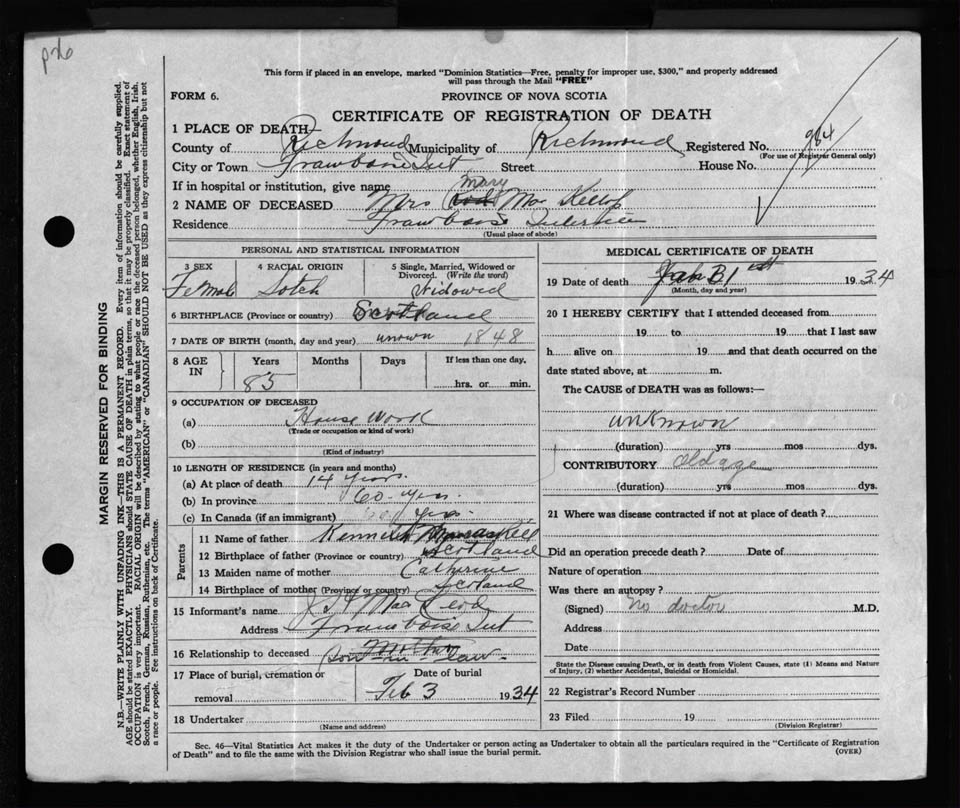 This form if placed in an envelope, marked "Dominion Statistics—Free, penalty for improper use, $300," and properly addressed
will pass through the Mail "FREE"
FORM 6.
PROVINCE OF NOVA SCOTIA
CERTIFICATE OF REGISTRATION OF DEATH
1 PLACE OF DEATH—
County of Richmond Municipality of Richmond Registered No. 984
(For use of Registrar General only)
City or Town Framboise Int Street House No.
If in hospital or institution, give name
Mary
2 NAME OF DECEASED Mrs Mac Killop
Residence Framboise
(Usual place of abode)
PERSONAL AND STATISTICAL INFORMATION
3 SEX 4 RACIAL ORIGIN 5 Single, Married, Widowed or
Divorced. (Write the word)
Female Scotch Widowed
6 BIRTHPLACE (Province or country) Scotland
7 DATE OF BIRTH (month, day and year) unown 1848
8 AGE IN Years Months Days If less than one day,
85 hrs. or min.
9 OCCUPATION OF DECEASED
(a) House Work
(Trade or occupation or kind of work)
(b)
(Kind of industry)
10 LENGTH OF RESIDENCE (in years and months)
(a) At place of death 14 years.
(b) In province 60 yrs.
(c) In Canada (if an immigrant) yrs.
Parents
11 Name of father Kenneth
12 Birthplace of father (Province or country) Scotland
13 Maiden name of mother Catherine
14 Birthplace of mother (Province or country) Scotland
15 Informant's name Mac Leod
Address Framboise Int
16 Relationship to deceased
Son-in-law
17 Place of burial, cremation or
removal
Date of burial
Feb 3 1934
18 Undertaker
(Name and address)
MEDICAL CERTIFICATE OF DEATH
19 Date of death 1934
(Month, day and year)
20 I HEREBY CERTIFY that I attended deceased from
19 to 19 that I last saw
h alive on 19 and that death occurred on the
date stated above, at m.
The CAUSE of DEATH was as follows:—
unknown
(duration) yrs mos dys.
CONTRIBUTORY Old age
(duration) yrs mos dys.
21 Where was disease contracted if not at place of death?
Did an operation precede death? Date of
Nature of operation
Was there an autopsy?
(Signed) No doctor M.D.
Address
Date
State the Disease causing Death, or in death from Violent Causes, state (1) Means and Nature
of Injury, (2) whether Accidental, Suicidal or Homicidal.
22 Registrar's Record Number
23 Filed 19
(Division Registrar)
Sec. 46—Vital Statistics Act makes it the duty of the Undertaker or person acting as Undertaker to obtain all the particulars required in the "Certificate of Registration
of Death" and to file the same with the Division Registrar who shall issue the burial permit.
(OVER)
MARGIN RESERVED FOR BINDING
N.B.—WRITE PLAINLY WITH UNFADING INK—THIS IS A PERMANENT RECORD. Every item of information should be carefully supplied.
AGE should be stated EXACTLY. PHYSICIANS should STATE CAUSE OF DEATH in plain terms, so that it may be properly classified. Exact statement of
OCCUPATION is very important. RACIAL ORIGIN will be described by stating to what people or race the deceased person belonged, whether English, Irish,
Scotch, French, German, Russian, Ruthenian, etc. The terms "AMERICAN" or "CANADIAN" SHOULD NOT BE USED as they express citizenship but not
a race or people. See instructions on back of Certificate.